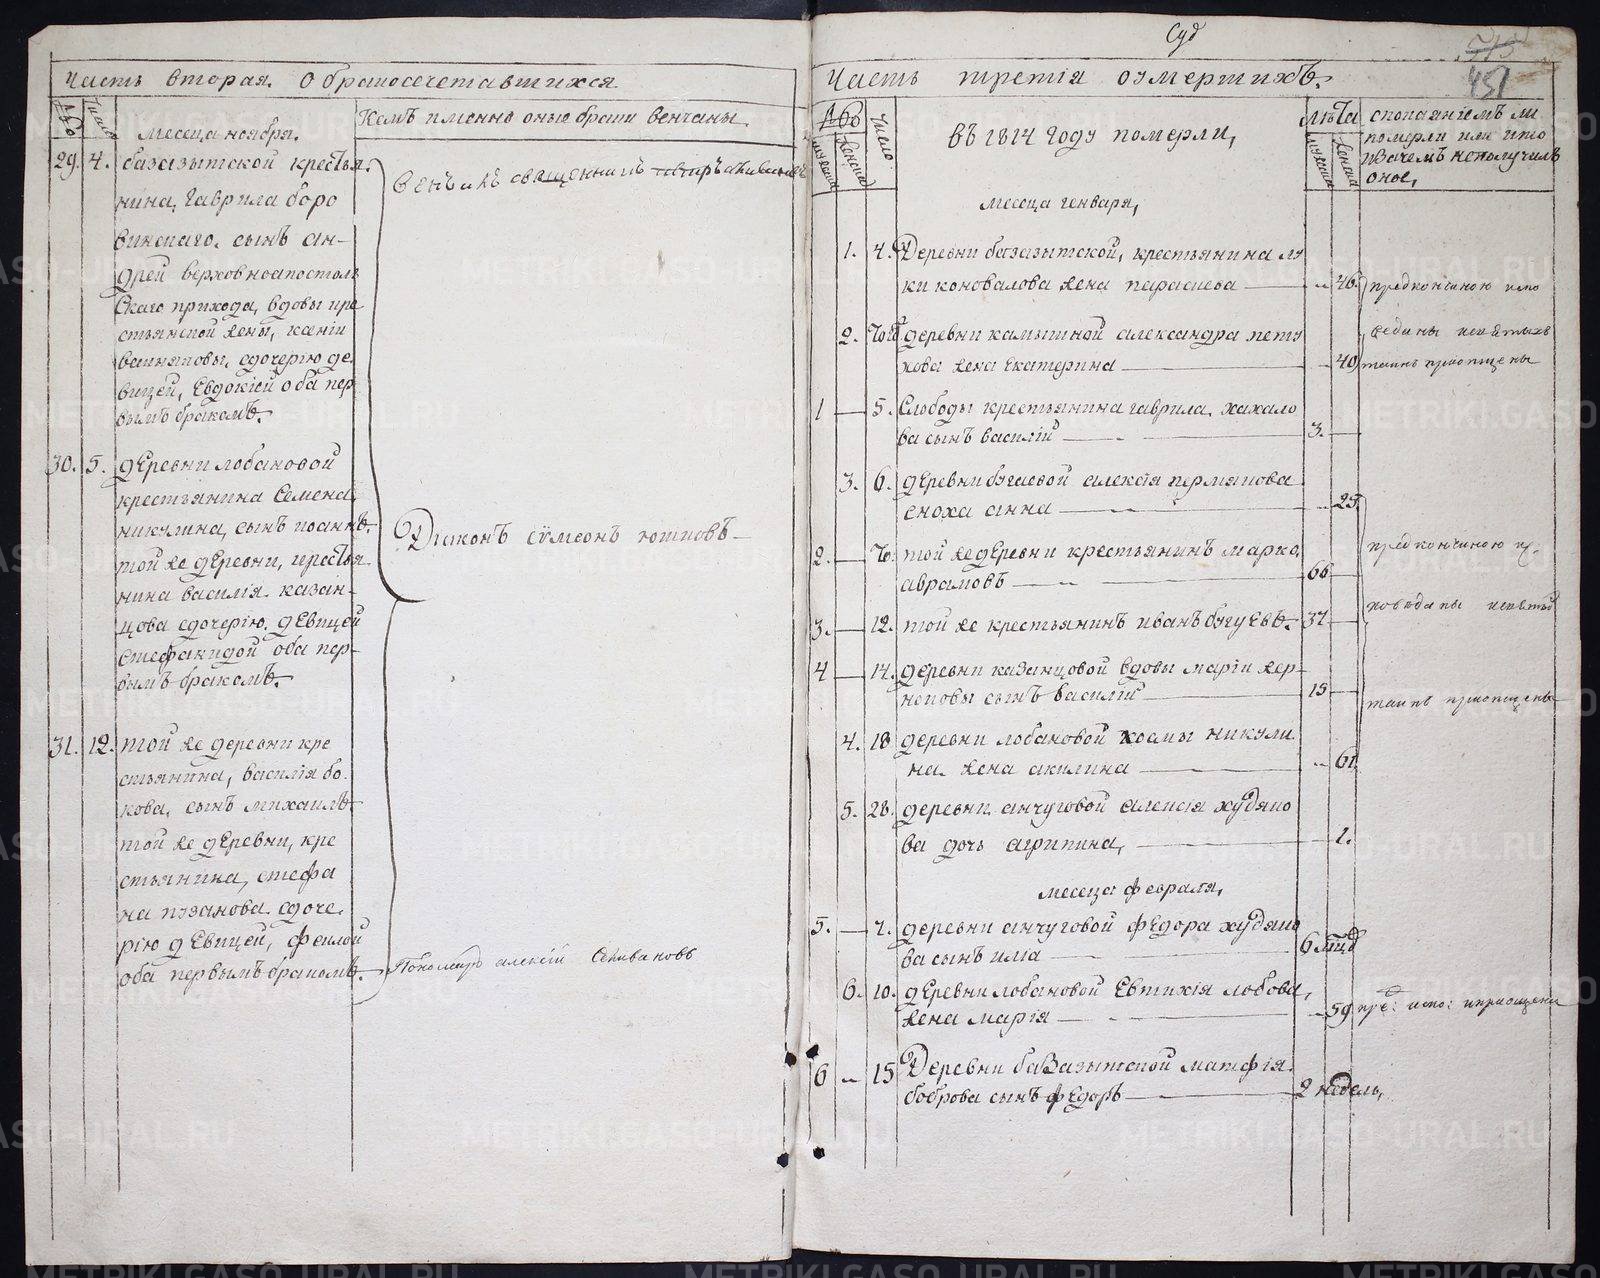 Часть вторая. О бракосочетавшихся.
Число
Кемъ именно оные браки венчаны.
месеца ноября.
29. 4. базазытской крестья-
нина, гаврила боро
винскаго. сынъ ан-
дрей верховноапостоль
скаго прихода, вдовы кре
стьянской жены, ксении
сдочерию де-
вицей, Евдокией оба пер
вымъ бракомъ.
30. 5. дЕревни лобановой
крестьянина Семена
никулина, сынъ иоаннъ.
той же дЕревни, крестья
нина василия казан-
цова сдочерию. дЕвицей
оба пер-
вымъ бракомъ.
31. 12. той же деревни кре
стьянина, василия бо.
кова, сынъ михаилъ
той же дЕревни, кре
стьянина, стефа
на пузанова сдоче.
рию дЕвицей, феклой
оба первымъ бракомъ.
священникъ
Диаконъ сумеонъ
Пономарь алексий Селивановъ
Суд
451
Часть третия оумертихъ.
мужеска
женска
Число
въ 1814 году померли,
лѣта
мужеска
женска
спокаяниемъ ли
померли или кто
изачемъ неполучилъ
оное,
месеца генваря,
1. 4. Деревни базазытской, крестьянина лу
ки коновалова жена парасиева 46
предкончиною испо
2. деревни камышной александра пету
хова жена екатерина 40
таинъ приопщены
1 5. Слободы крестьянина гаврила. хахало
ва сынъ василий 3.
3. 6. дЕревни бугаевой алексия пермякова
сноха анна 25
2. той же дЕревни крестьянинъ марко,
аврамовъ 66
предкончиною
3. 12. той же крестьянинъ иванъ бугуевъ 37
4 14. деревни казанцовой вдовы марии
сынъ василий 15
таинъ приопщены
4. 18 деревни лобановой космы никули
на. жена акилина 61
5. 28. деревни. анчуговой алексия худяко
ва дочь агрипина, 1.
месеца февраля,
5. 7. деревни анчуговой фЕдора худяко
ва сынъ илиа 6 мцд
6. 10. дЕревни лобановой Евтихия лобова,
жена мария 59
пре: испо: иприопщена
6 15 Деревни базазытской матфия
боброва сынъ фЕдоръ 2 недель,